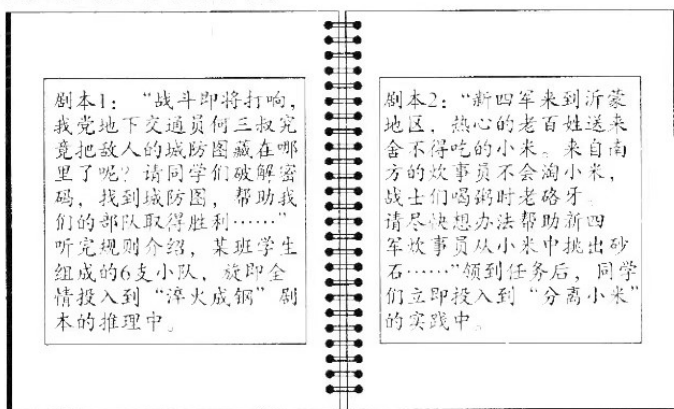 剧本1：“战斗即将打响，
我党地下交通员何三叔究
竟把敌人的城防图藏在哪
里了呢？请同学们破解密
码，找到城防图，帮助我
们的部队取得胜利……”
听完规则介绍，某班学生
组成的6支小队，旋即全
情投入到“淬火成钢”剧
本的推理中。
剧本2：“新四军来到沂蒙
地区，热心的老百姓送来
舍不得吃的小米。来自南
方的炊事员不会淘小米，
战士们喝粥时老硌牙。
请尽快想办法帮助新四
军炊事员从小米中挑出砂
石……”领到任务后，同学
们立即投入到“分离小米”
的实践中。